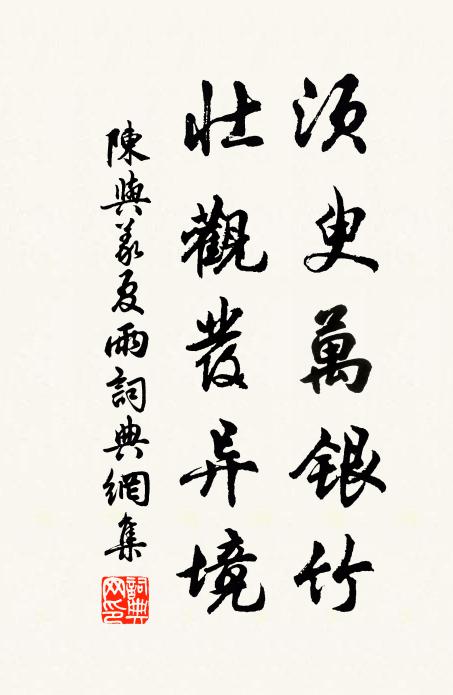 須臾萬銀竹
壯觀發异境
陳與義夏雨詞典網集
詞典網印